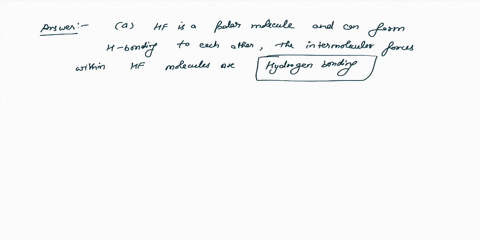 Answer:- (a) HF is a polar molecule and can form
H-bonding to each other, the intermolecular forces
within HF molecules are Hydrogen bonding